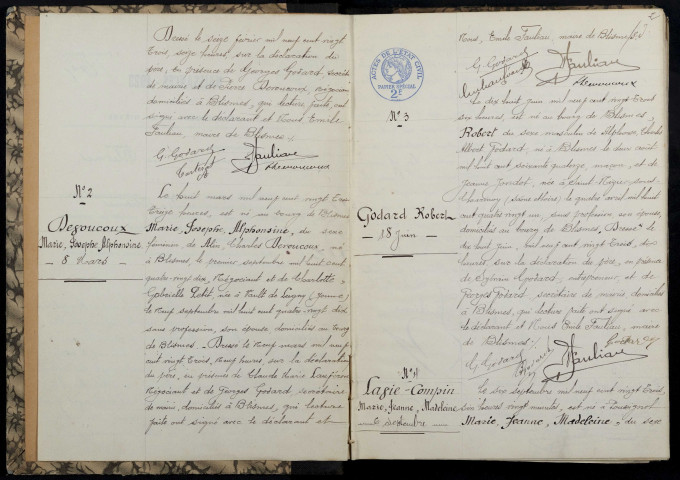 Dressé le seize février mil neuf cent vingt
trois, seize heures, sur la déclaration du
père, en présence de Georges Godard, secrétaire
de mairie et de Pierre Devoucoux,
domiciliés à Blismes, qui lecture faite, ont
signé avec le déclarant et Nous Emile
Fauliau, maire de Blismes.
G. Godard
Fauliau
Devoucoux
N° 2
Devoucoux
Marie, Josephe, Alphonsine
8 Mars
Le huit mars mil neuf cent vingt trois
treize heures, est née au bourg de Blismes
Marie, Josephe, Alphonsine, du sexe
féminin de Charles Devoucoux, né
à Blismes, le premier septembre mil huit cent
quatre-vingt dix, négociant et de Charlotte
Gabrielle Petit, née à Vault de Lugny (Yonne)
le neuf septembre mil huit cent quatre-vingt dix
sans profession, son épouse domiciliés au bourg
de Blismes. Dressé le neuf mars mil neuf
cent vingt trois, neuf heures, sur la déclaration
du père, en présence de Claude Marie
négociant et de Georges Godard, secrétaire
de mairie, domiciliés à Blismes, qui lecture
faite ont signé avec le déclarant et
2
Nous, Emile Fauliau, maire de Blismes
G. Godard
Fauliau
Devoucoux
ACTES DE L'ÉTAT CIVIL
PAPIER SPÉCIAL
2F
N° 3
Godard Robert
18 Juin
Le dix huit juin mil neuf cent vingt trois
six heures, est né au bourg de Blismes
Robert du sexe masculin de Alphonse, Charles
Albert Godard, né à Blismes le deux août
mil huit cent soixante quatorze, maçon et de
Jeanne née à Saint
le quatre avril mil huit
cent quatre vingt un, sans profession son épouse,
domiciliés au bourg de Blismes. Dressé le
dix huit juin, mil neuf cent vingt trois, dix
heures sur la déclaration du père, en présence
de Sylvain Godard, entrepreneur et de
Georges Godard secrétaire de mairie domiciliés
à Blismes, qui lecture faite ont signé avec
le déclarant et Nous Emile Fauliau, maire
de Blismes
G. Godard
Godard
Fauliau
N° 4
Lagie-Compin
Marie, Jeanne, Madeleine
6 Septembre
Le six septembre mil neuf cent vingt trois,
six heures vingt minutes, est née à
Marie, Jeanne, Madeleine, du sexe